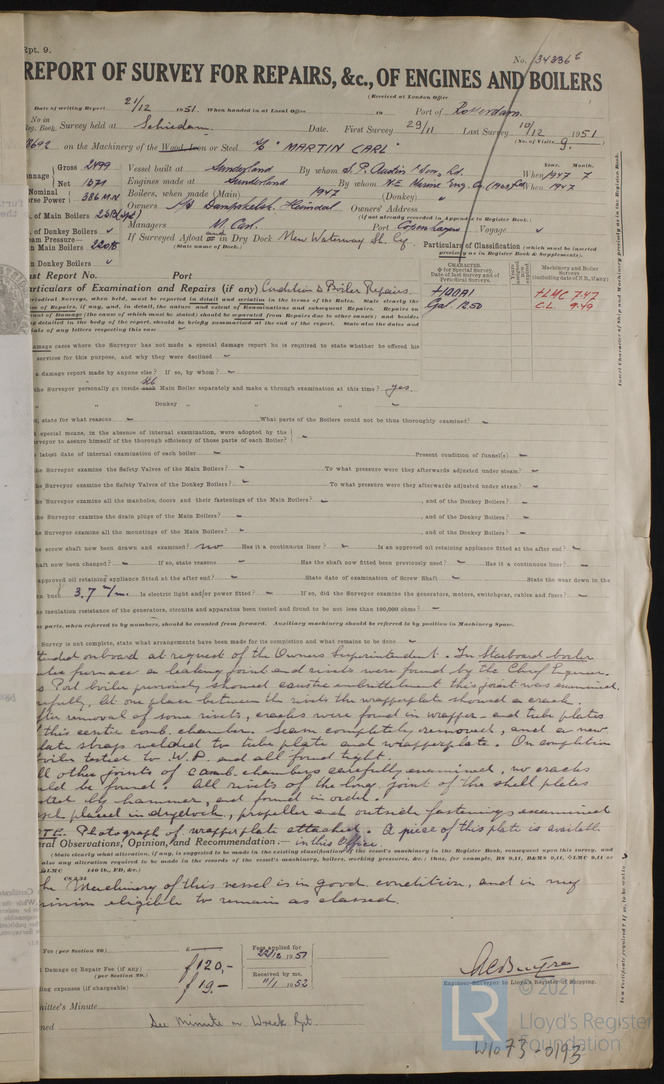 Rpt. 9.
No. 34336 c
REPORT OF SURVEY FOR REPAIRS, &c., OF ENGINES AND BOILERS
(Received at London Office
Date of writing Report 21/12 1951. When handed in at Local Office 19 Port of Rotterdam.
No in Reg. Book. Survey held at Schiedam. Date. First Survey 29/11 Last Survey 10/12 1951
(No. of Visits 9.)
on the Machinery of the Wood, Iron or Steel "MARTIN CARL"
Gross 2499 Vessel built at Sunderland By whom S.P. Austin & Son, Ld. When 1947 7
Year. Month.
Net 1371 Engines made at Sunderland By whom N.E. Marine Eng. Co. (1938) Ld When 1947
Nominal Horse Power 386 MN Boilers, when made (Main) 1947 (Donkey) "
Owners A/S Dampskibsk. Heimdal Owners' Address
(if not already recorded in Appendix to Register Book.)
. of Main Boilers
Managers M. Carl. Port Copenhagen Voyage
. of Donkey Boilers
If Surveyed Afloat or in Dry Dock New Waterway Sb. Cy.
(State name of Dock.)
am Pressure—
n Main Boilers 220 lb
n Donkey Boilers
Particulars of Classification (which must be inserted precisely as in Register Book & Supplements).
CHARACTER.
Machinery and Boiler Surveys
+100A1
+LMC 7.47
C.L. 9.49
ast Report No. Port
articulars of Examination and Repairs (if any) Condition & Boiler Repairs.
amage cases where the Surveyor has not made a special damage report he is required to state whether he offered his
services for this purpose, and why they were declined
a damage report made by anyone else? If so, by whom?
the Surveyor personally go inside each Main Boiler separately and make a thorough examination at this time? yes.
" Donkey " " "
, state for what reasons What parts of the Boilers could not be thus thoroughly examined?
special means, in the absence of internal examination, were adopted by the
rveyor to assure himself of the thorough efficiency of those parts of each Boiler?
latest date of internal examination of each boiler Present condition of funnel(s)
he Surveyor examine the Safety Valves of the Main Boilers? To what pressure were they afterwards adjusted under steam?
he Surveyor examine the Safety Valves of the Donkey Boilers? To what pressure were they afterwards adjusted under steam?
he Surveyor examine all the manholes, doors and their fastenings of the Main Boilers? , and of the Donkey Boilers?
he Surveyor examine the drain plugs of the Main Boilers? , and of the Donkey Boilers?
he Surveyor examine all the mountings of the Main Boilers? , and of the Donkey Boilers?
he screw shaft now been drawn and examined? no Has it a continuous liner? Is an approved oil retaining appliance fitted at the after end?
haft now been changed? If so, state reasons Has the shaft now fitted been previously used? Has it a continuous liner?
approved oil retaining appliance fitted at the after end? State date of examination of Screw Shaft State the wear down in the
rn bush 3.7 m/m. Is electric light and/or power fitted? If so, did the Surveyor examine the generators, motors, switchgear, cables and fuses?
he insulation resistance of the generators, circuits and apparatus been tested and found to be not less than 100,000 ohms?
ne parts, when referred to by numbers, should be counted from forward. Auxiliary machinery should be referred to by position in Machinery Space.
Survey is not complete, state what arrangements have been made for its completion and what remains to be done
tended onboard at request of the Owners Superintendent. In Starboard boiler
furnace a leaking joint and rivets were found by the Chief Engineer.
s Port boiler previously showed caustic embrittlement this joint was examined
refully, at one place between the rivets the wrapperplate showed a crack.
fter removal of some rivets, cracks were found in wrapper- and tube plates
this centre comb. chamber. Seam completely removed, and a new
late straps welded to tube plate and wrapperplate. On completion
boiler tested to W.P. and all found tight.
ll other joints of comb. chambers carefully examined, no cracks
uld be found. All rivets of the long. joint of the shell plates
sted by hammer, and found in order.
placed in drydock, propeller and outside fastenings examined
TE. Photograph of wrapperplate attached. A piece of this plate is available
in this Office.
ral Observations, Opinion, and Recommendation:—
(State clearly what alteration, if any, is suggested to be made in the existing classification of the vessel's machinery in the Register Book, consequent upon this survey, and
he Machinery of this vessel is in good condition, and in my
inion eligible to remain as classed.
Fee (per Section 29) £
Fees applied for 22/12 1951
Damage or Repair Fee (if any) (per Section 29.) ƒ120,-
Received by me, 11/1 1952
ling expenses (if chargeable) ƒ19.-
Engineer-Surveyor to Lloyd's Register of Shipping.
mittee's Minute
ned See Minute on Wreck Rpt.
© 2021
LR
Lloyd's Register
Foundation
W1073-0193